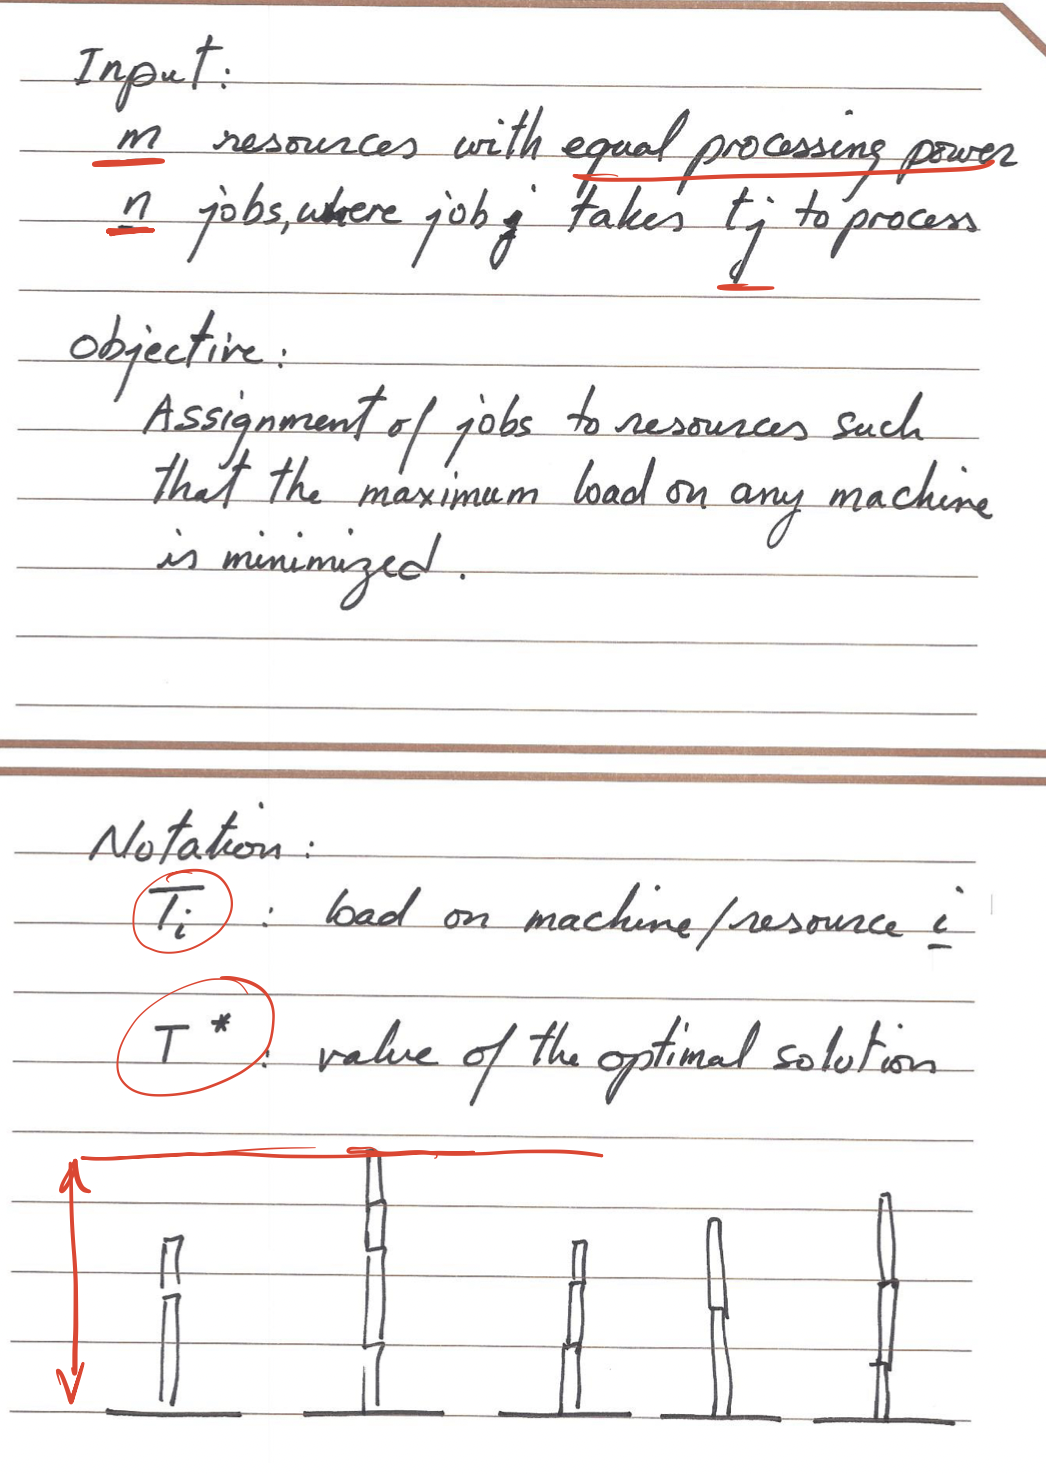 Input:
m resources with equal processing power
n jobs, where job j takes tj to process
Objective:
Assignment of jobs to resources such
that the maximum load on any machine
is minimized.
Notation:
Ti : load on machine/resource i
T* : value of the optimal solution